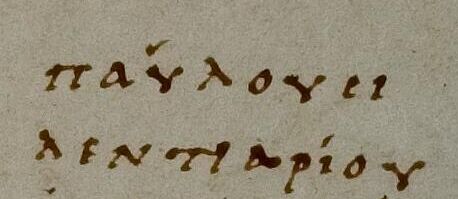 παύλου σι
λεντιαρίου